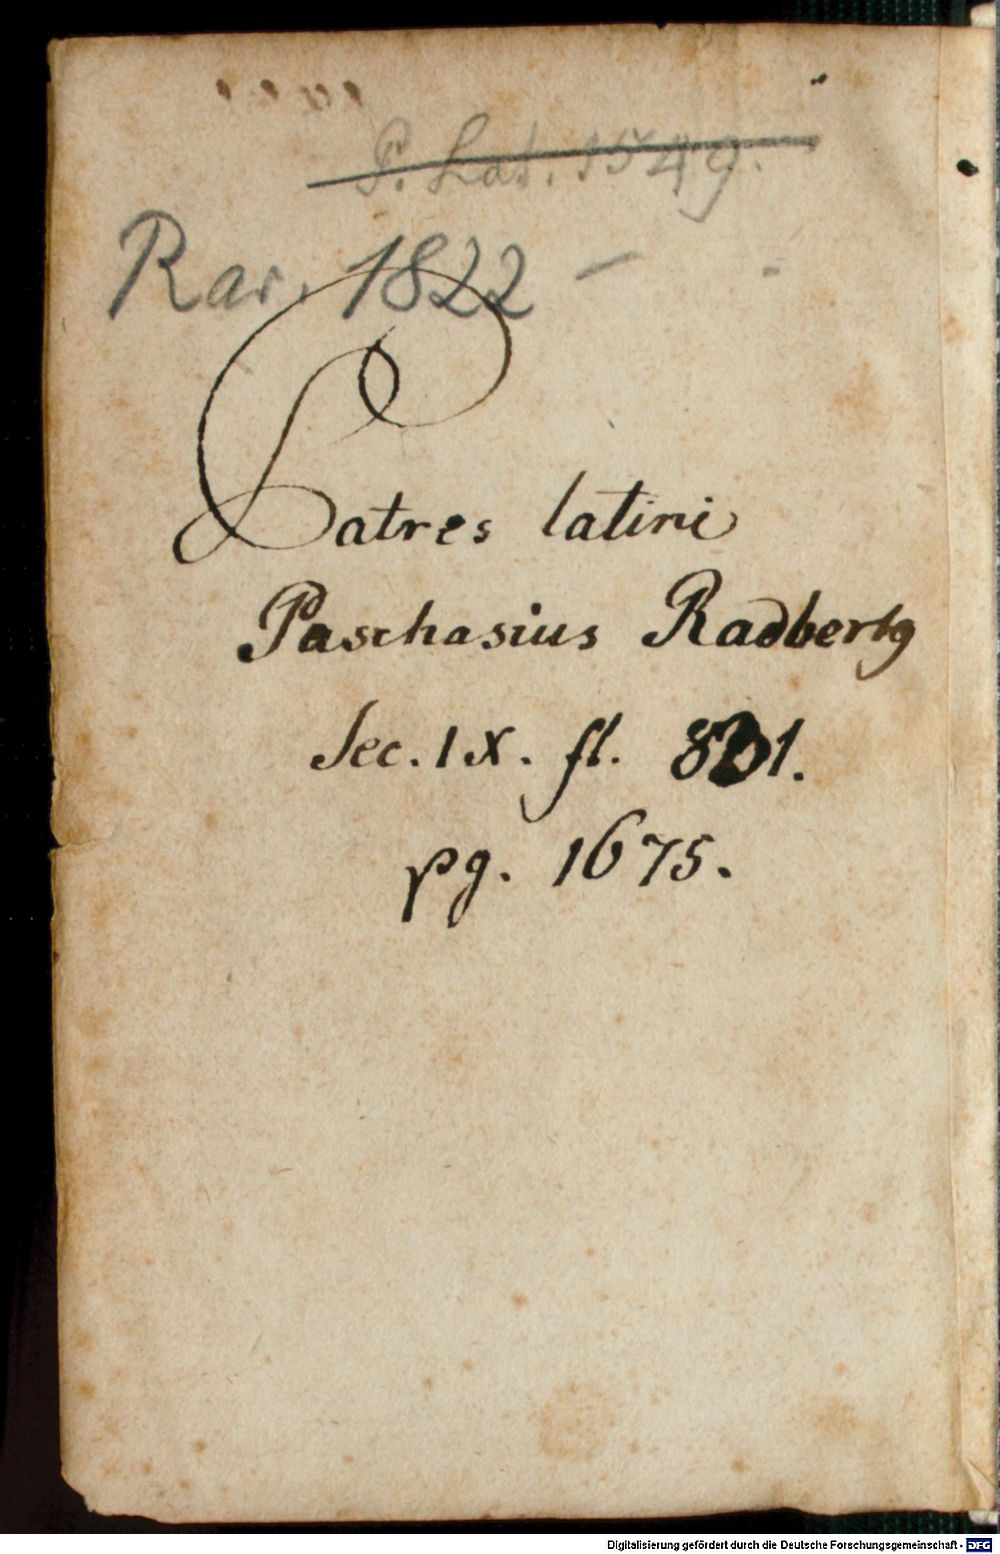 P. Lat. 1549.
Rar. 1822 –
Patres latini
Paschasius Radbertꝰ
Sec. IX. fl. 831.
pg. 1675.
Digitalisierung gefördert durch die Deutsche Forschungsgemeinschaft - DFG